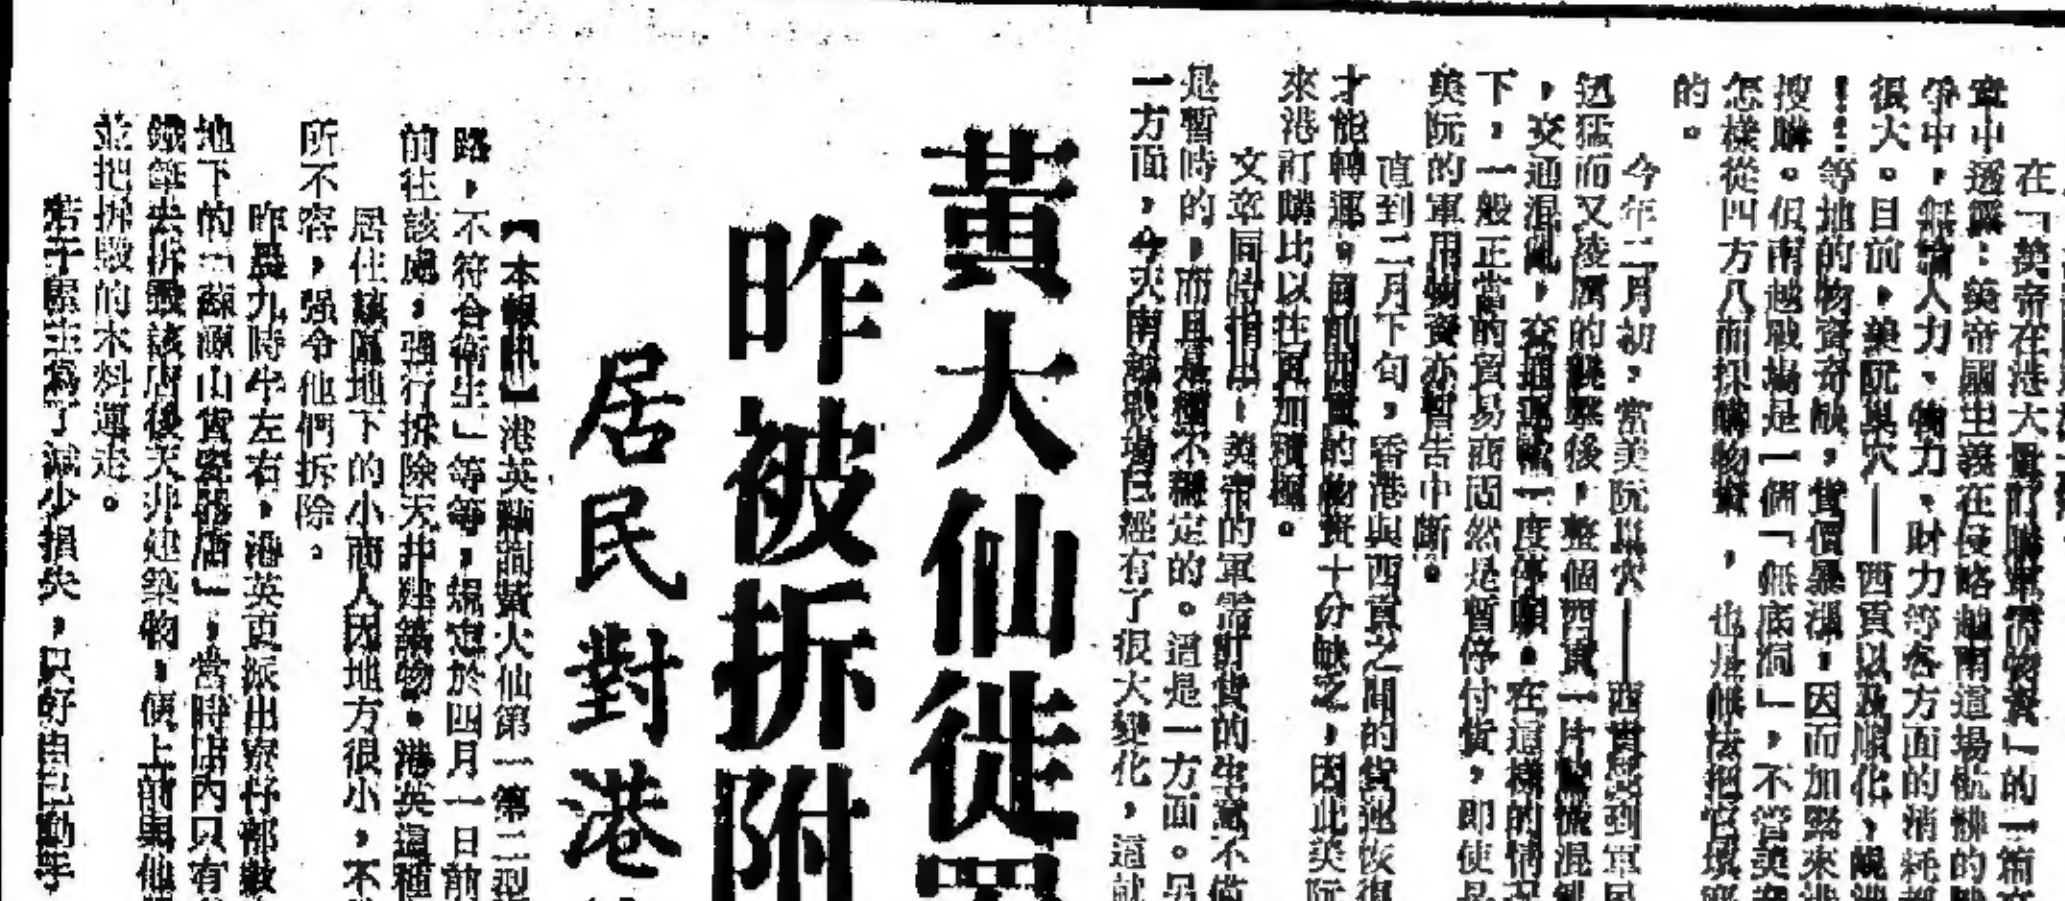 在「美帝在港大量訂購軍需物資」的一篇文
章中透露：美帝國主義在侵略越南這場骯髒的戰
爭中，無論人力、物力、財力等各方面的消耗都
很大。目前，美阮巢穴——西貢以及順化，峴港
等地的物資奇缺，貨價暴漲，因而加緊來港
搜購。但南越戰場是一個「無底洞」，不管美帝
怎樣從四方八面採購物資，也是無法把它填塞
的。
今年二月初，當美阮巢穴——西貢受到軍民
猛而又凌厲的襲擊後，整個西貢一片驚慌混亂
，交通混亂，交通運輸一度停頓。在這樣的情況
下，一般正當的貿易商固然是暫停付貨，即使是
美阮的軍用物資亦暫告中斷。
直到二月下旬，香港與西貢之間的貨運恢復
才能轉運。目前西貢的物資十分缺乏，因此美阮
來港訂購比以往更加積極。
文章同時指出：美帝的軍需訂貨的生意不值
是暫時的，而且是極不穩定的。這是一方面。另
一方面，今天南越戰場已經有了很大變化，這就
黃大仙徙置
昨被拆附
居民對港
【本報訊】港英藉詞黃大仙第一第二型
路，不符合衛生」等等，規定於四月一日前
前往該處，強行拆除天井建築物。港英這種
居住該區地下的小商人因地方很小，不
所不容，强令他們拆除。
昨晨九時半左右，港英更派出寮仔部數
地下的「蘇源山貨瓷器店」，當時店內只有
等去拆毀該店後天井建築物，便上前與他
並把拆毀的木料運走。
若干屋主為了減少損失，只好自己動手